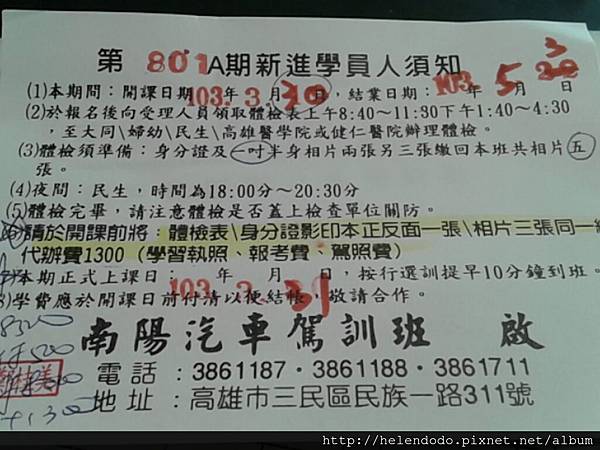 第 801A期新進學員人須知
(1)本期間：開課日期103.年3.月30日，結業日期：103.年5月3 20日
(2)於報名後向受理人員領取體檢表上午8:40～11:30下午1:40～4:30
，至大同\婦幼\民生\高雄醫學院或健仁醫院辦理體檢。
(3)體檢須準備：身分證及一吋半身相片兩張另三張繳回本班共相片五
張。
(4)夜間：民生，時間為18:00分～20:30分
(5)體檢完畢，請注意體檢是否蓋上檢查單位關防。
請於開課前將：體檢表\身分證影印本正反面一張\相片三張同一
代辦費1300（學習執照、報考費、駕照費）
本期正式上課日：103年3.月31日，按行選訓提早10分鐘到班。
學費應於開課日前付清以便結帳，敬請合作。
南陽汽車駕訓班 啟
電話：3861187・3861188・3861711
地址：高雄市三民區民族一路311號
http://helendodo.pixnet.net/album